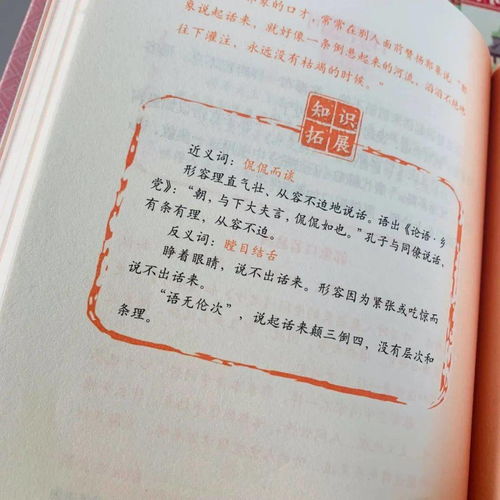 的口才，常常在别人面前赞扬郭象说：“郭
象说起话来，就好像一条倒悬起来的河流，滔滔不绝地
往下灌注，永远没有枯竭的时候。”
知识
拓展
近义词：侃侃而谈
形容理直气壮、从容不迫地说话。语出《论语·乡
党》：“朝，与下大夫言，侃侃如也。”孔子与同僚说话，
有条有理，从容不迫。
反义词：瞠目结舌
睁着眼睛，说不出话来。形容因为紧张或吃惊而
说不出话来。
“语无伦次”，说起话来颠三倒四，没有层次和
条理。